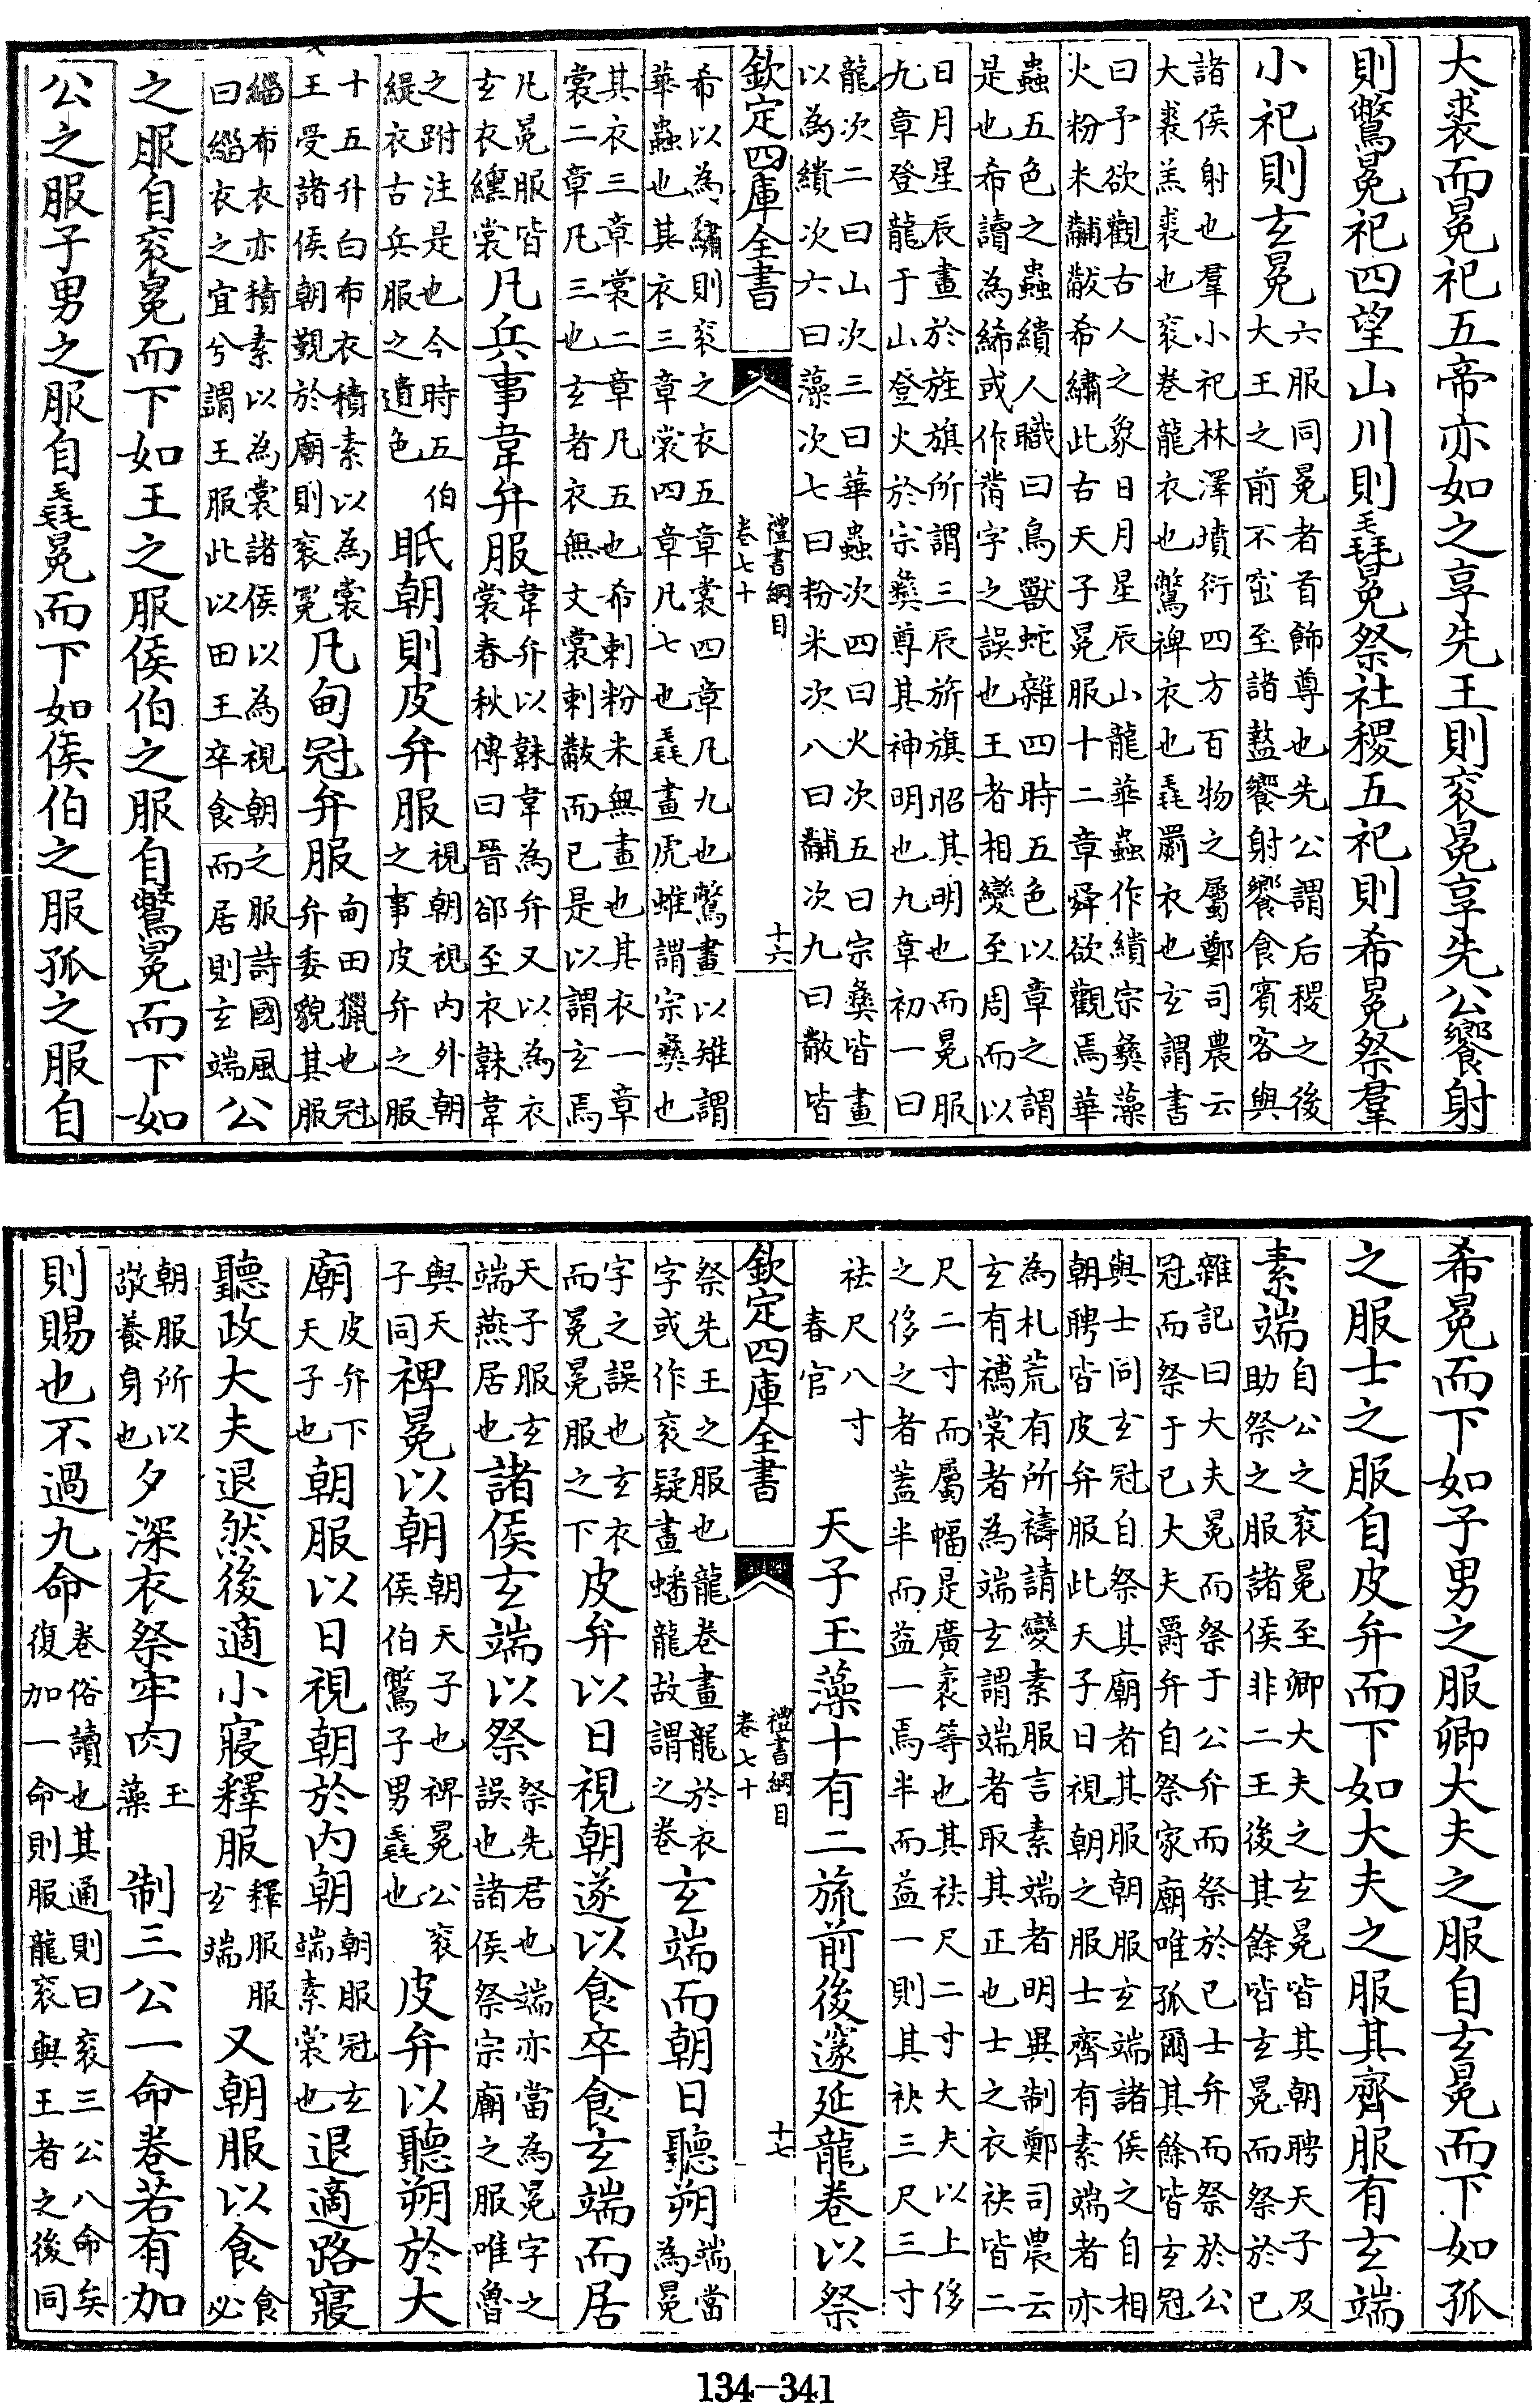 大裘而冕祀五帝亦如之享先王則衮冕享先公饗射
則鷩冕祀四望山川則毳冕祭社稷五祀則希冕祭羣
小祀則玄冕六服同冕者首飾尊也先公謂后稷之後
大王之前不窋至諸盩饗射饗食賓客與
諸侯射也羣小祀林澤墳衍四方百物之屬鄭司農云
大裘羔裘也衮卷龍衣也鷩裨衣也毳罽衣也玄謂書
曰予欲觀古人之象日月星辰山龍華蟲作繢宗彝藻
火粉米黼黻希繡此古天子冕服十二章舜欲觀焉華
蟲五色之蟲繢人職曰鳥獸蛇雜四時五色以章之謂
是也希讀為絺或作黹字之誤也王者相變至周而以
日月星辰畫於旌旗所謂三辰旂旗昭其明也而冕服
九章登龍于山登火於宗彝尊其神明也九章初一曰
龍次二曰山次三曰華蟲次四曰火次五曰宗彝皆畫
以為繢次六曰藻次七曰粉米次八曰黼次九曰黻皆
欽定四庫全書 禮書綱目 卷七十 十六
希以為繡則衮之衣五章裳四章凡九也鷩畫以雉謂
華蟲也其衣三章裳四章凡七也毳畫虎蜼謂宗彝也
其衣三章裳二章凡五也希刺粉米無畫也其衣一章
裳二章凡三也玄者衣無文裳刺黻而已是以謂玄焉
凡冕服皆
玄衣纁裳凡兵事韋弁服韋弁以韎韋為弁又以為衣
裳春秋傳曰晉郤至衣韎韋
之跗注是也今時五伯
緹衣古兵服之遺色眂朝則皮弁服視朝視內外朝
之事皮弁之服
十五升白布衣積素以為裳
王受諸侯朝覲於廟則衮冕凡甸冠弁服甸田獵也冠
弁委貌其服
緇布衣亦積素以為裳諸侯以為視朝之服詩國風
曰緇衣之宜兮謂王服此以田王卒食而居則玄端公
之服自衮冕而下如王之服侯伯之服自鷩冕而下如
公之服子男之服自毳冕而下如侯伯之服孤之服自
希冕而下如子男之服卿大夫之服自玄冕而下如孤
之服士之服自皮弁而下如大夫之服其齊服有玄端
素端自公之衮冕至卿大夫之玄冕皆其朝聘天子及
助祭之服諸侯非二王後其餘皆玄冕而祭於已
雜記曰大夫冕而祭于公弁而祭於已士弁而祭於公
冠而祭于已大夫爵弁自祭家廟唯孤爾其餘皆玄冠
與士同玄冠自祭其廟者其服朝服玄端諸侯之自相
朝聘皆皮弁服此天子日視朝之服士齊有素端者亦
為札荒有所禱請變素服言素端者明異制鄭司農云
玄有襦裳者為端玄謂端者取其正也士之衣袂皆二
尺二寸而屬幅是廣袤等也其袪尺二寸大夫以上侈
之侈之者蓋半而益一焉半而益一則其袂三尺三寸
袪尺八寸
春官 天子玉藻十有二旒前後邃延龍卷以祭
欽定四庫全書 禮書綱目 卷七十 十七
祭先王之服也龍卷畫龍於衣
字或作衮疑畫蟠龍故謂之卷玄端而朝日聽朔端當
為冕
字之誤也玄衣
而冕冕服之下皮弁以日視朝遂以食卒食玄端而居
天子服玄
端燕居也諸侯玄端以祭祭先君也端亦當為冕字之
誤也諸侯祭宗廟之服唯魯
與天
子同裨冕以朝朝天子也裨冕公衮
侯伯鷩子男毳也皮弁以聽朔於大
廟皮弁下
天子也朝服以日視朝於內朝朝服冠玄
端素裳也退適路寢
聽政大夫退然後適小寢釋服釋服服
玄端又朝服以食食
必
朝服所以
敬養身也夕深衣祭牢肉玉
藻 制三公一命卷若有加
則賜也不過九命卷俗讀也其通則曰衮三公八命矣
復加一命則服龍衮與王者之後同
134-341